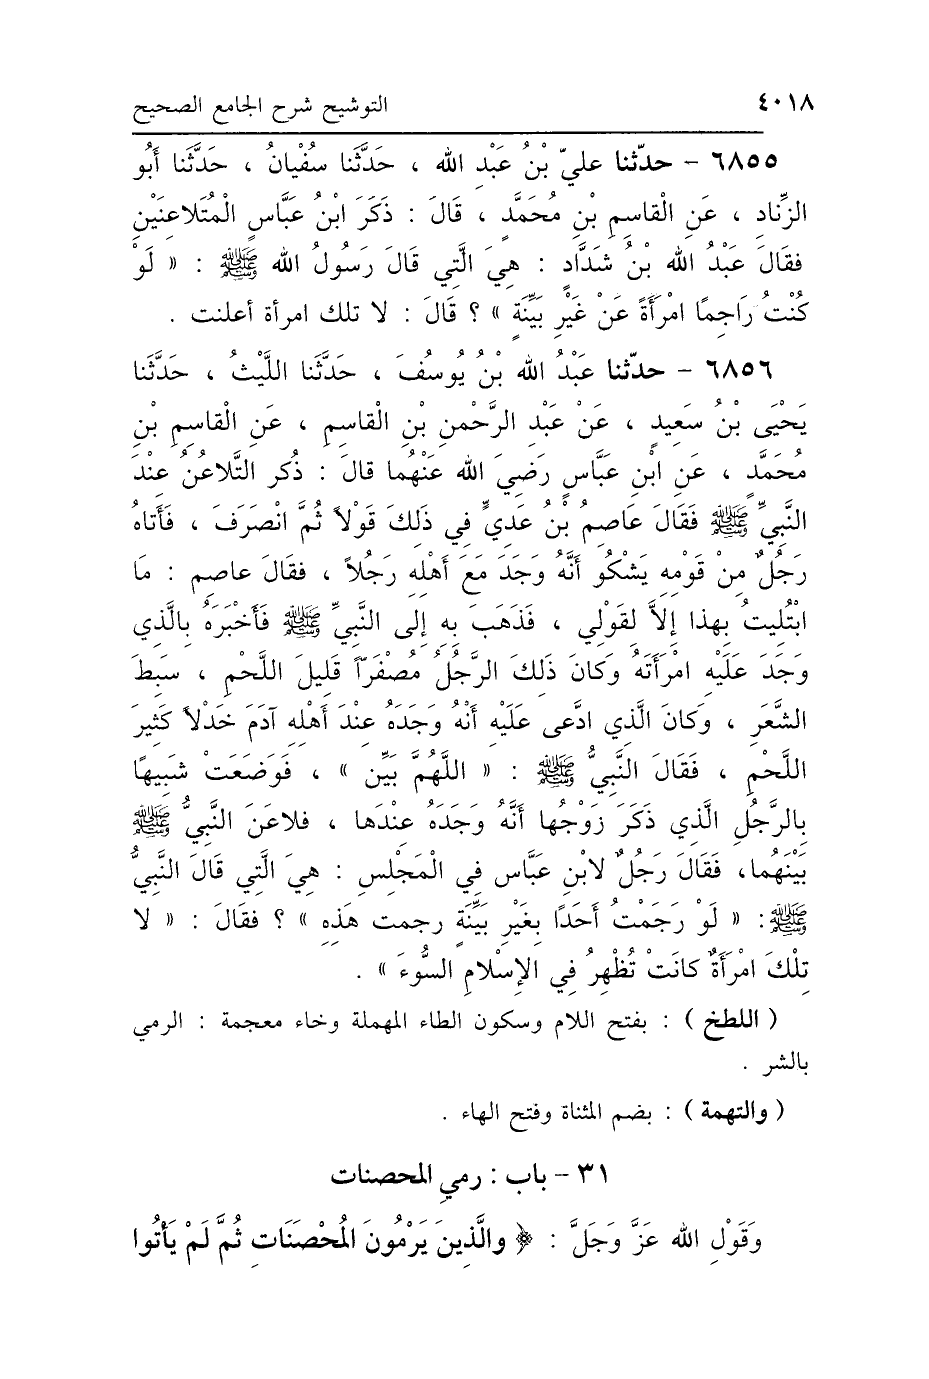 ٤٠١٨
التوشيح شرح الجامع الصحيح
٦٨٥٥ – حدّثنا عليّ بْنُ عَبْدِ الله ، حَدَّثَنا سُفْيانُ ، حَدَّثَنا أَبُو
الزِّنادِ ، عَنِ الْقاسِمِ بْنِ مُحَمَّدٍ ، قَالَ : ذَكَرَ ابْنُ عَبَّاسٍ الْمُتَلاعنَيْنِ
فقَالَ عَبْدُ الله بْنُ شَدَّادٍ : هِيَ الَّتِي قَالَ رَسُولُ الله ﷺ : « لَوْ
كُنْتُ رَاجِمًا امْرَأَةً عَنْ غَيْرِ بَيِّنَةٍ » ؟ قَالَ : لا تلك امرأة أعلنت .
٦٨٥٦ – حدّثنا عَبْدُ الله بْنُ يُوسُفَ ، حَدَّثَنا اللَّيْثُ ، حَدَّثَنا
يَحْيَى بْنُ سَعِيدٍ ، عَنْ عَبْدِ الرَّحْمنِ بْنِ الْقاسِمِ ، عَنِ الْقاسِمِ بْنِ
مُحَمَّدٍ ، عَنِ ابْنِ عَبَّاسٍ رَضِيَ الله عَنْهُما قالَ : ذُكر التَّلاعُنُ عِنْدَ
النَّبِيِّ ﷺ فَقَالَ عَاصِمُ بْنُ عَدِيٍّ فِي ذَلِكَ قَوْلاً ثُمَّ انْصَرَفَ ، فَأَتاهُ
رَجُلٌ مِنْ قَوْمِهِ يَشْكُو أَنَّهُ وَجَدَ مَعَ أَهْلِهِ رَجُلاً ، فقَالَ عاصِم : مَا
ابْتُلِيتُ بِهذا إِلاَّ لقَوْلِي ، فَذَهَبَ بِهِ إِلى النَّبِيِّ ﷺ فَأَخْبَرَهُ بِالَّذِي
وَجَدَ عَلَيْهِ امْرَأَتَهُ وَكَانَ ذَلِكَ الرَّجُلُ مُصْفَرًّا قَلِيلَ اللَّحْمِ ، سَبِطَ
الشَّعَرِ ، وَكَانَ الَّذِي ادَّعى عَلَيْهِ أَنَّهُ وَجَدَهُ عِنْدَ أَهْلِهِ آدَمَ خَدْلاً كَثِيرَ
اللَّحْمِ ، فَقَالَ النَّبِيُّ ﷺ : « اللَّهُمَّ بَيِّن » ، فَوَضَعَتْ شَبِيهًا
بِالرَّجُلِ الَّذِي ذَكَرَ زَوْجُها أَنَّهُ وَجَدَهُ عِنْدَها ، فلاعَنَ النَّبِيُّ ﷺ
بَيْنَهُما، فَقَالَ رَجُلٌ لابْنِ عَبَّاس فِي الْمَجْلِسِ : هِيَ الَّتِي قَالَ النَّبِيُّ
ﷺ: « لَوْ رَجَمْتُ أَحَدًا بِغَيْرِ بَيِّنَةٍ رجمت هَذِهِ » ؟ فقَالَ : « لا
تِلْكَ امْرَأَةٌ كانَتْ تُظْهِرُ فِي الإِسْلامِ السُّوءَ » .
( اللطخ ) : بفتح اللام وسكون الطاء المهملة وخاء معجمة : الرمي
بالشر .
( والتهمة ) : بضم المثناة وفتح الهاء .
٣١ – باب : رمي المحصنات
وَقَوْلِ الله عَزَّ وَجَلَّ : ﴿ والَّذِينَ يَرْمُونَ الْمُحْصَنَاتِ ثُمَّ لَمْ يَأْتُوا